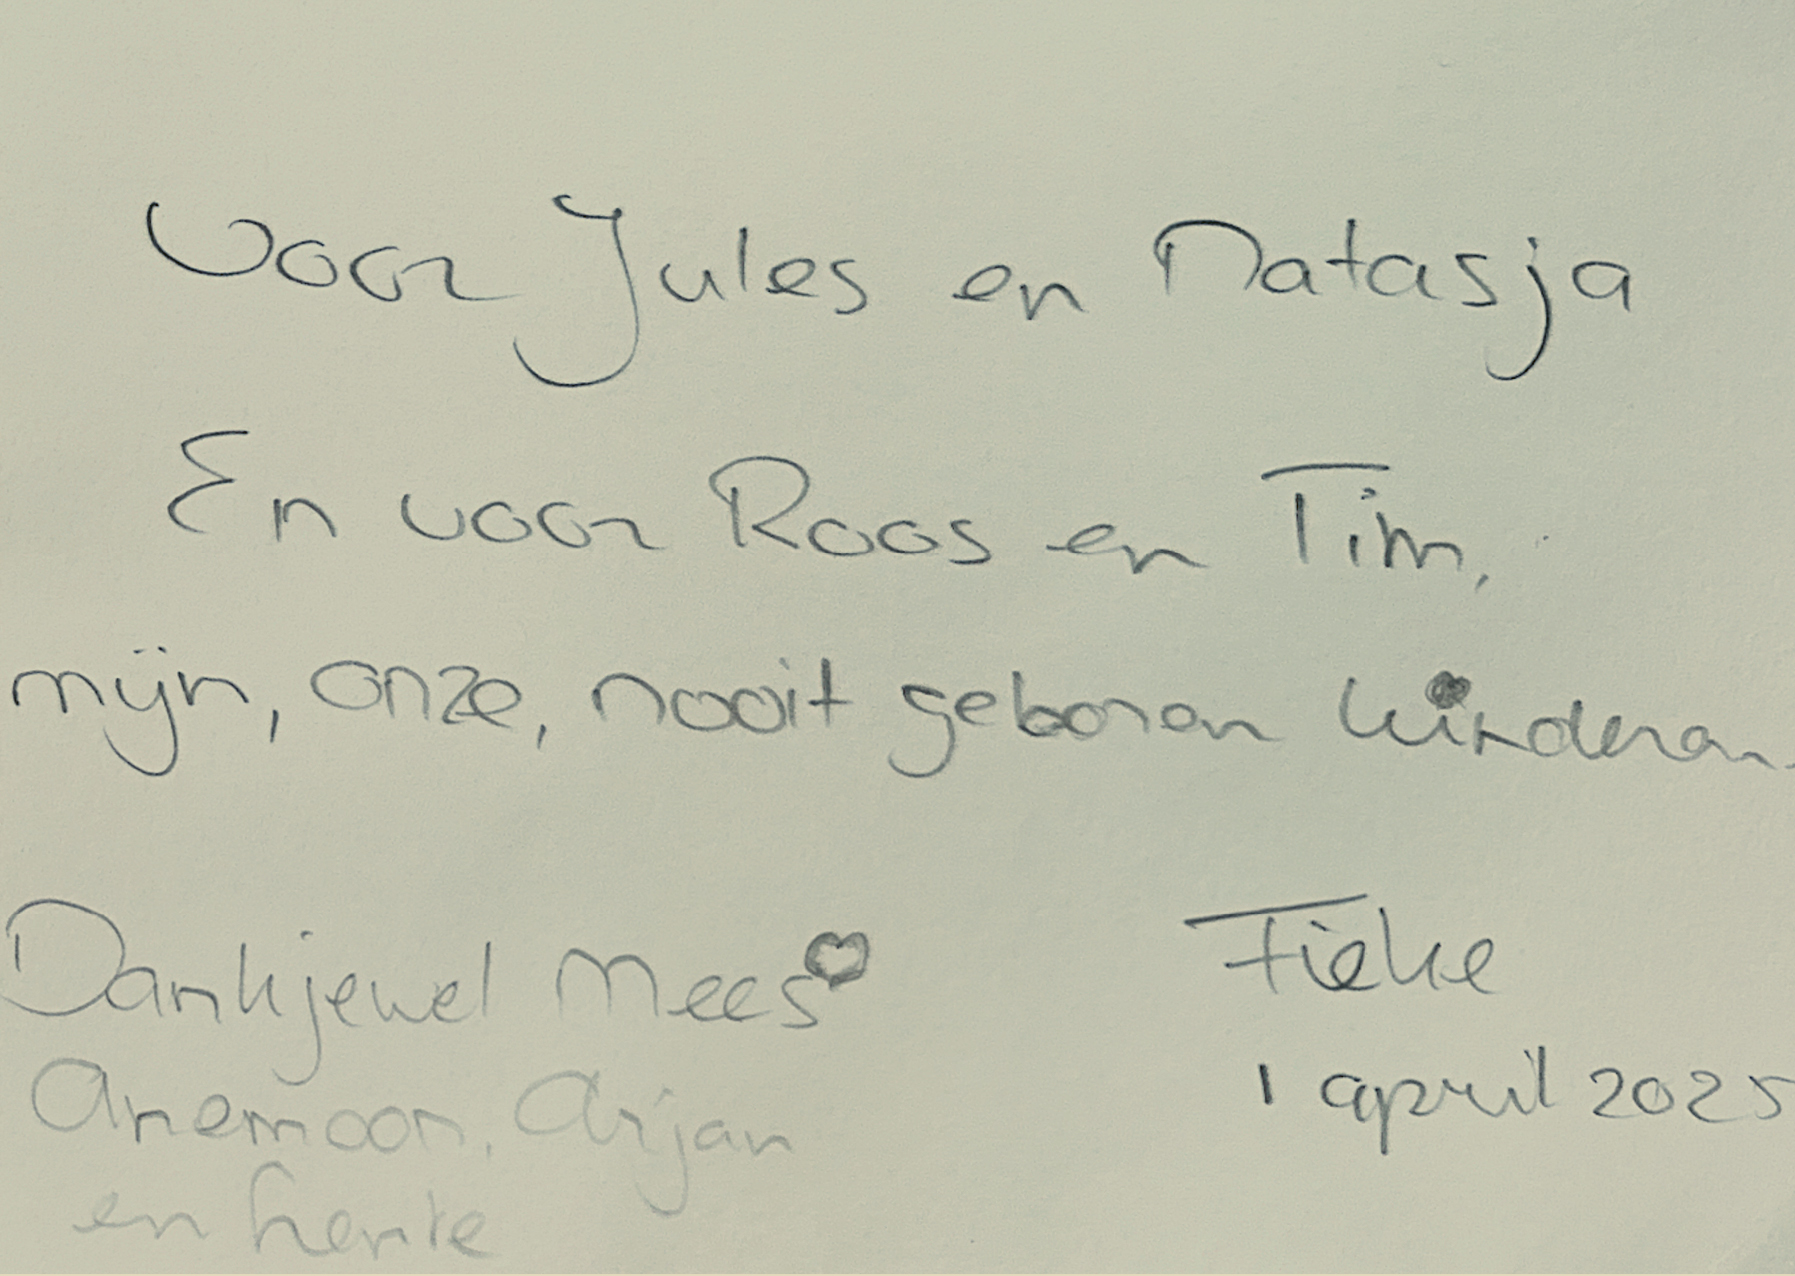 Voor Jules en Natasja
En voor Roos en Tim,
mijn, onze, nooit geboren kinderen.
Dankjewel Mees
Anemoon, Arjan
en
Fieke
1 april 2025